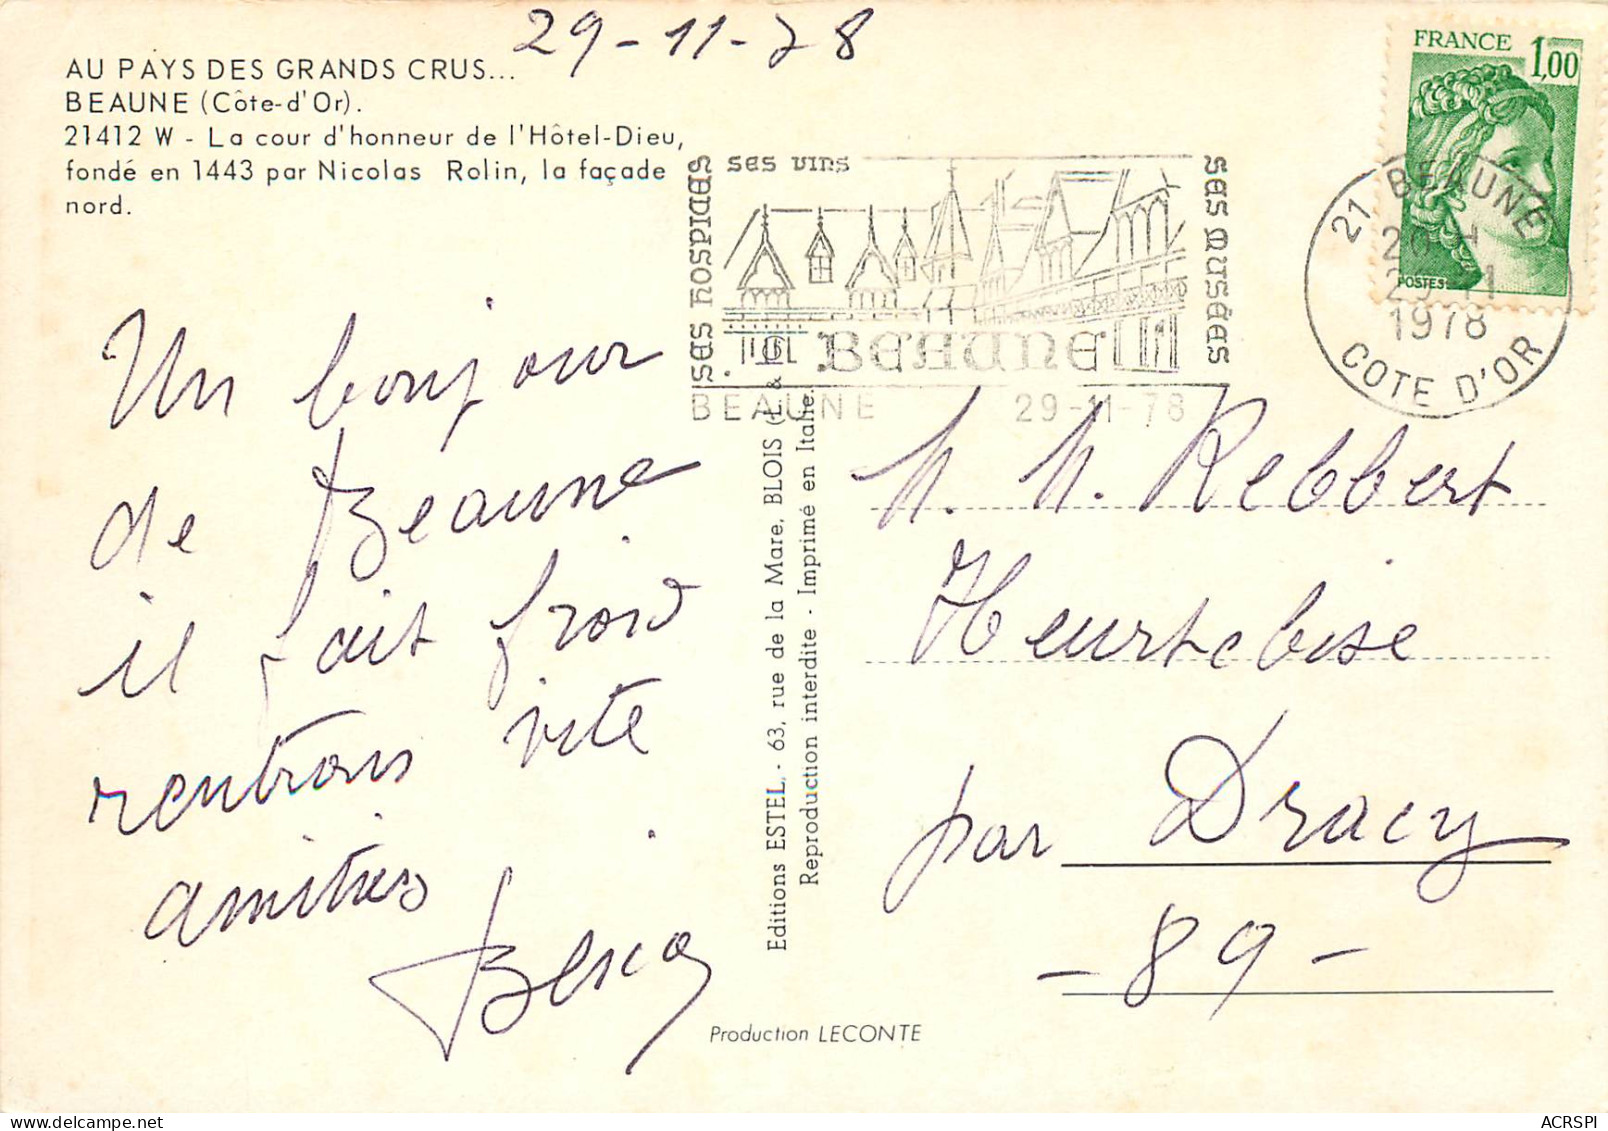 29-11-78
AU PAYS DES GRANDS CRUS...
BEAUNE (Côte-d'Or).
21412 W - La cour d'honneur de l'Hôtel-Dieu,
fondé en 1443 par Nicolas Rolin, la façade
nord.
Un bonjour
de Beaune
il fait froid
rentrons vite
amitiés
ses hospices
ses vins
ses musées
BEAUNE
BEAUNE 29-11-78
FRANCE 1,00
POSTES
21 BEAUNE
29-11
1978
COTE D'OR
Editions ESTEL, - 63, rue de la Mare, BLOIS (L. &
Reproduction interdite - Imprimé en Italie.
M. M. Rebbert
Heurtebise
par Dracy
- 89 -
Production LECONTE
ACRSPI